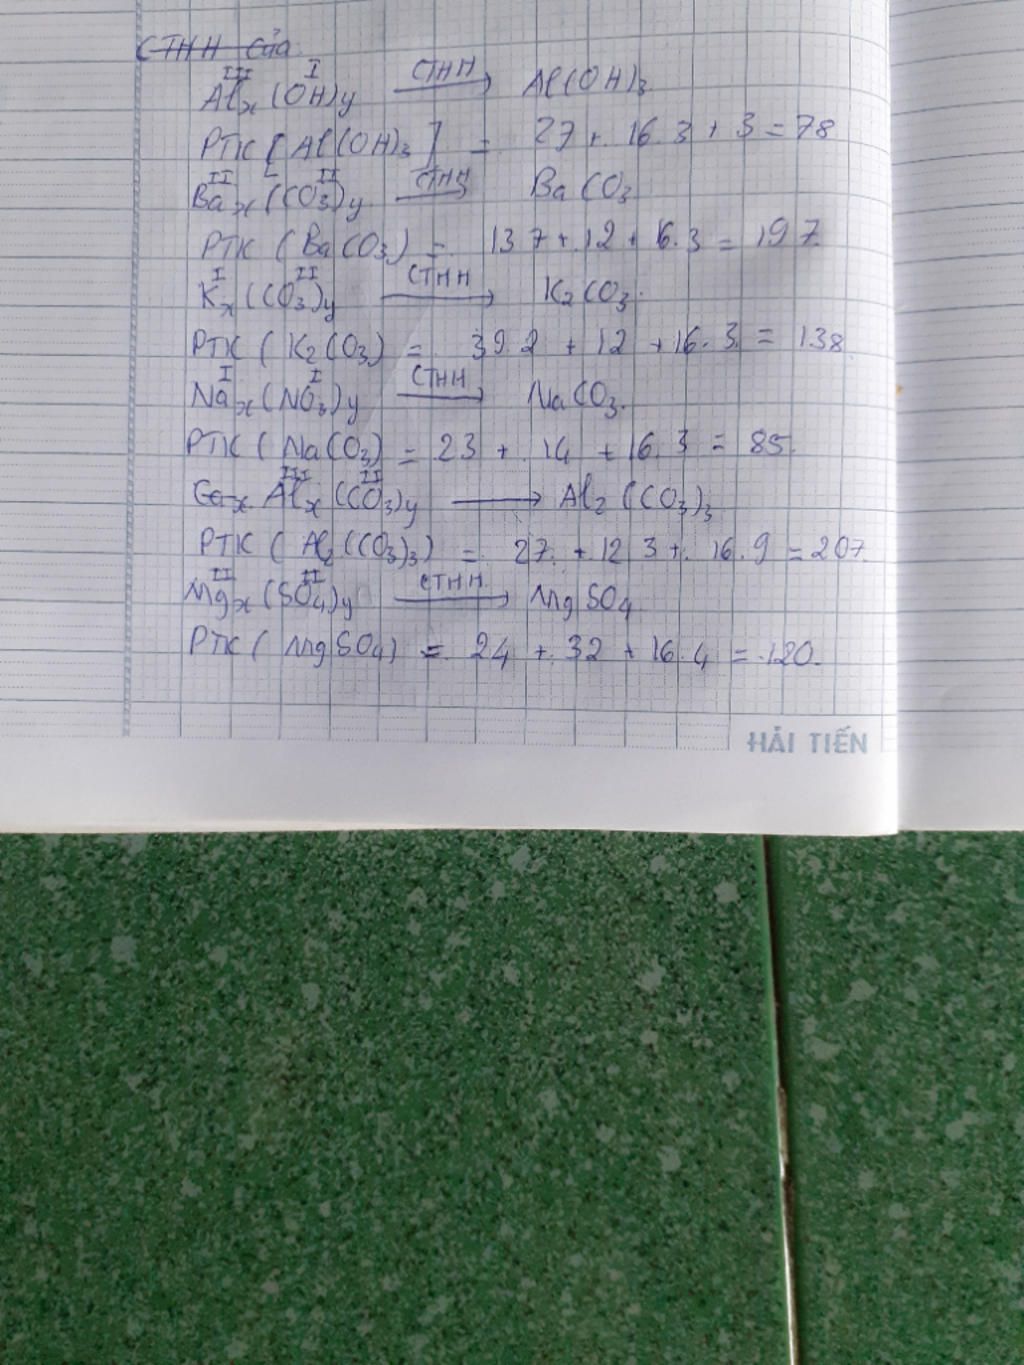 CTHH của
III I
Alx(OH)y CTHH→ Al(OH)3
PTK [Al(OH)3] = 27 + 16.3 + 3 = 78
II II
Bax(CO3)y CTHH→ BaCO3
PTK (BaCO3) = 137 + 12 + 16.3 = 197
I II
Kx(CO3)y CTHH→ K2CO3.
PTK (K2CO3) = 39.2 + 12 + 16.3 = 138
I I
Nax(NO3)y CTHH→ NaCO3.
PTK (NaCO3) = 23 + 14 + 16.3 = 85
III II
Alx(CO3)y → Al2(CO3)3
PTK (Al2(CO3)3) = 27 + 12 3 + 16.9 = 207
II II
Mgx(SO4)y CTHH→ MgSO4
PTK (MgSO4) = 24 + 32 + 16.4 = 120.
HẢI TIẾN